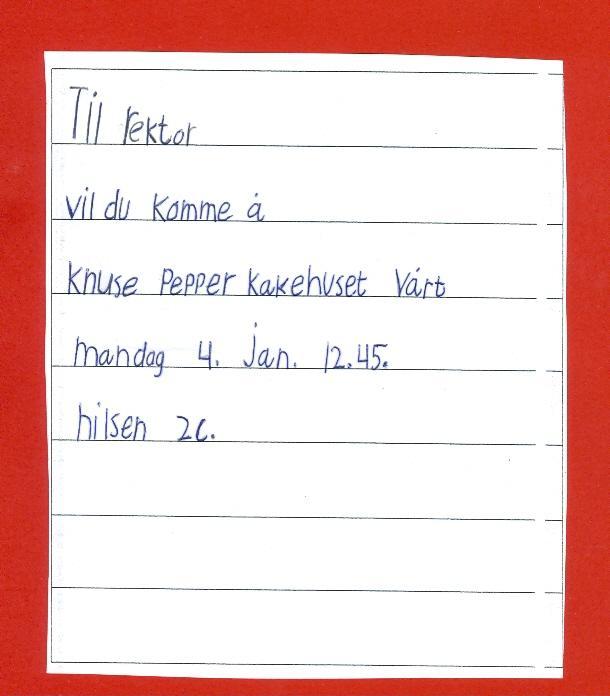 Til rektor
vil du komme å
knuse pepper kakehuset vårt
mandag 4. jan. 12.45.
hilsen 2c.